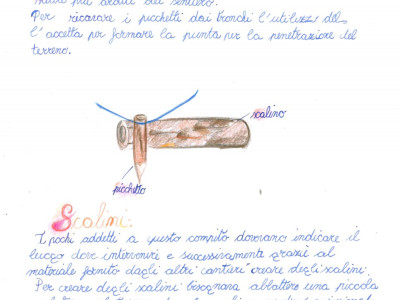 Per ricavare i picchetti dai tronchi l'utilizz
l'accetta per formare la punta per la penetrazione del
terreno.
scalino
picchetto
Scalini:
I pochi addetti a questo compito dovevano indicare il
luogo dove intervenire e successivamente grazie al
materiale fornito dagli altri "cantieri" creare degli scalini.
Per creare degli scalini bisognava abbattere una piccola